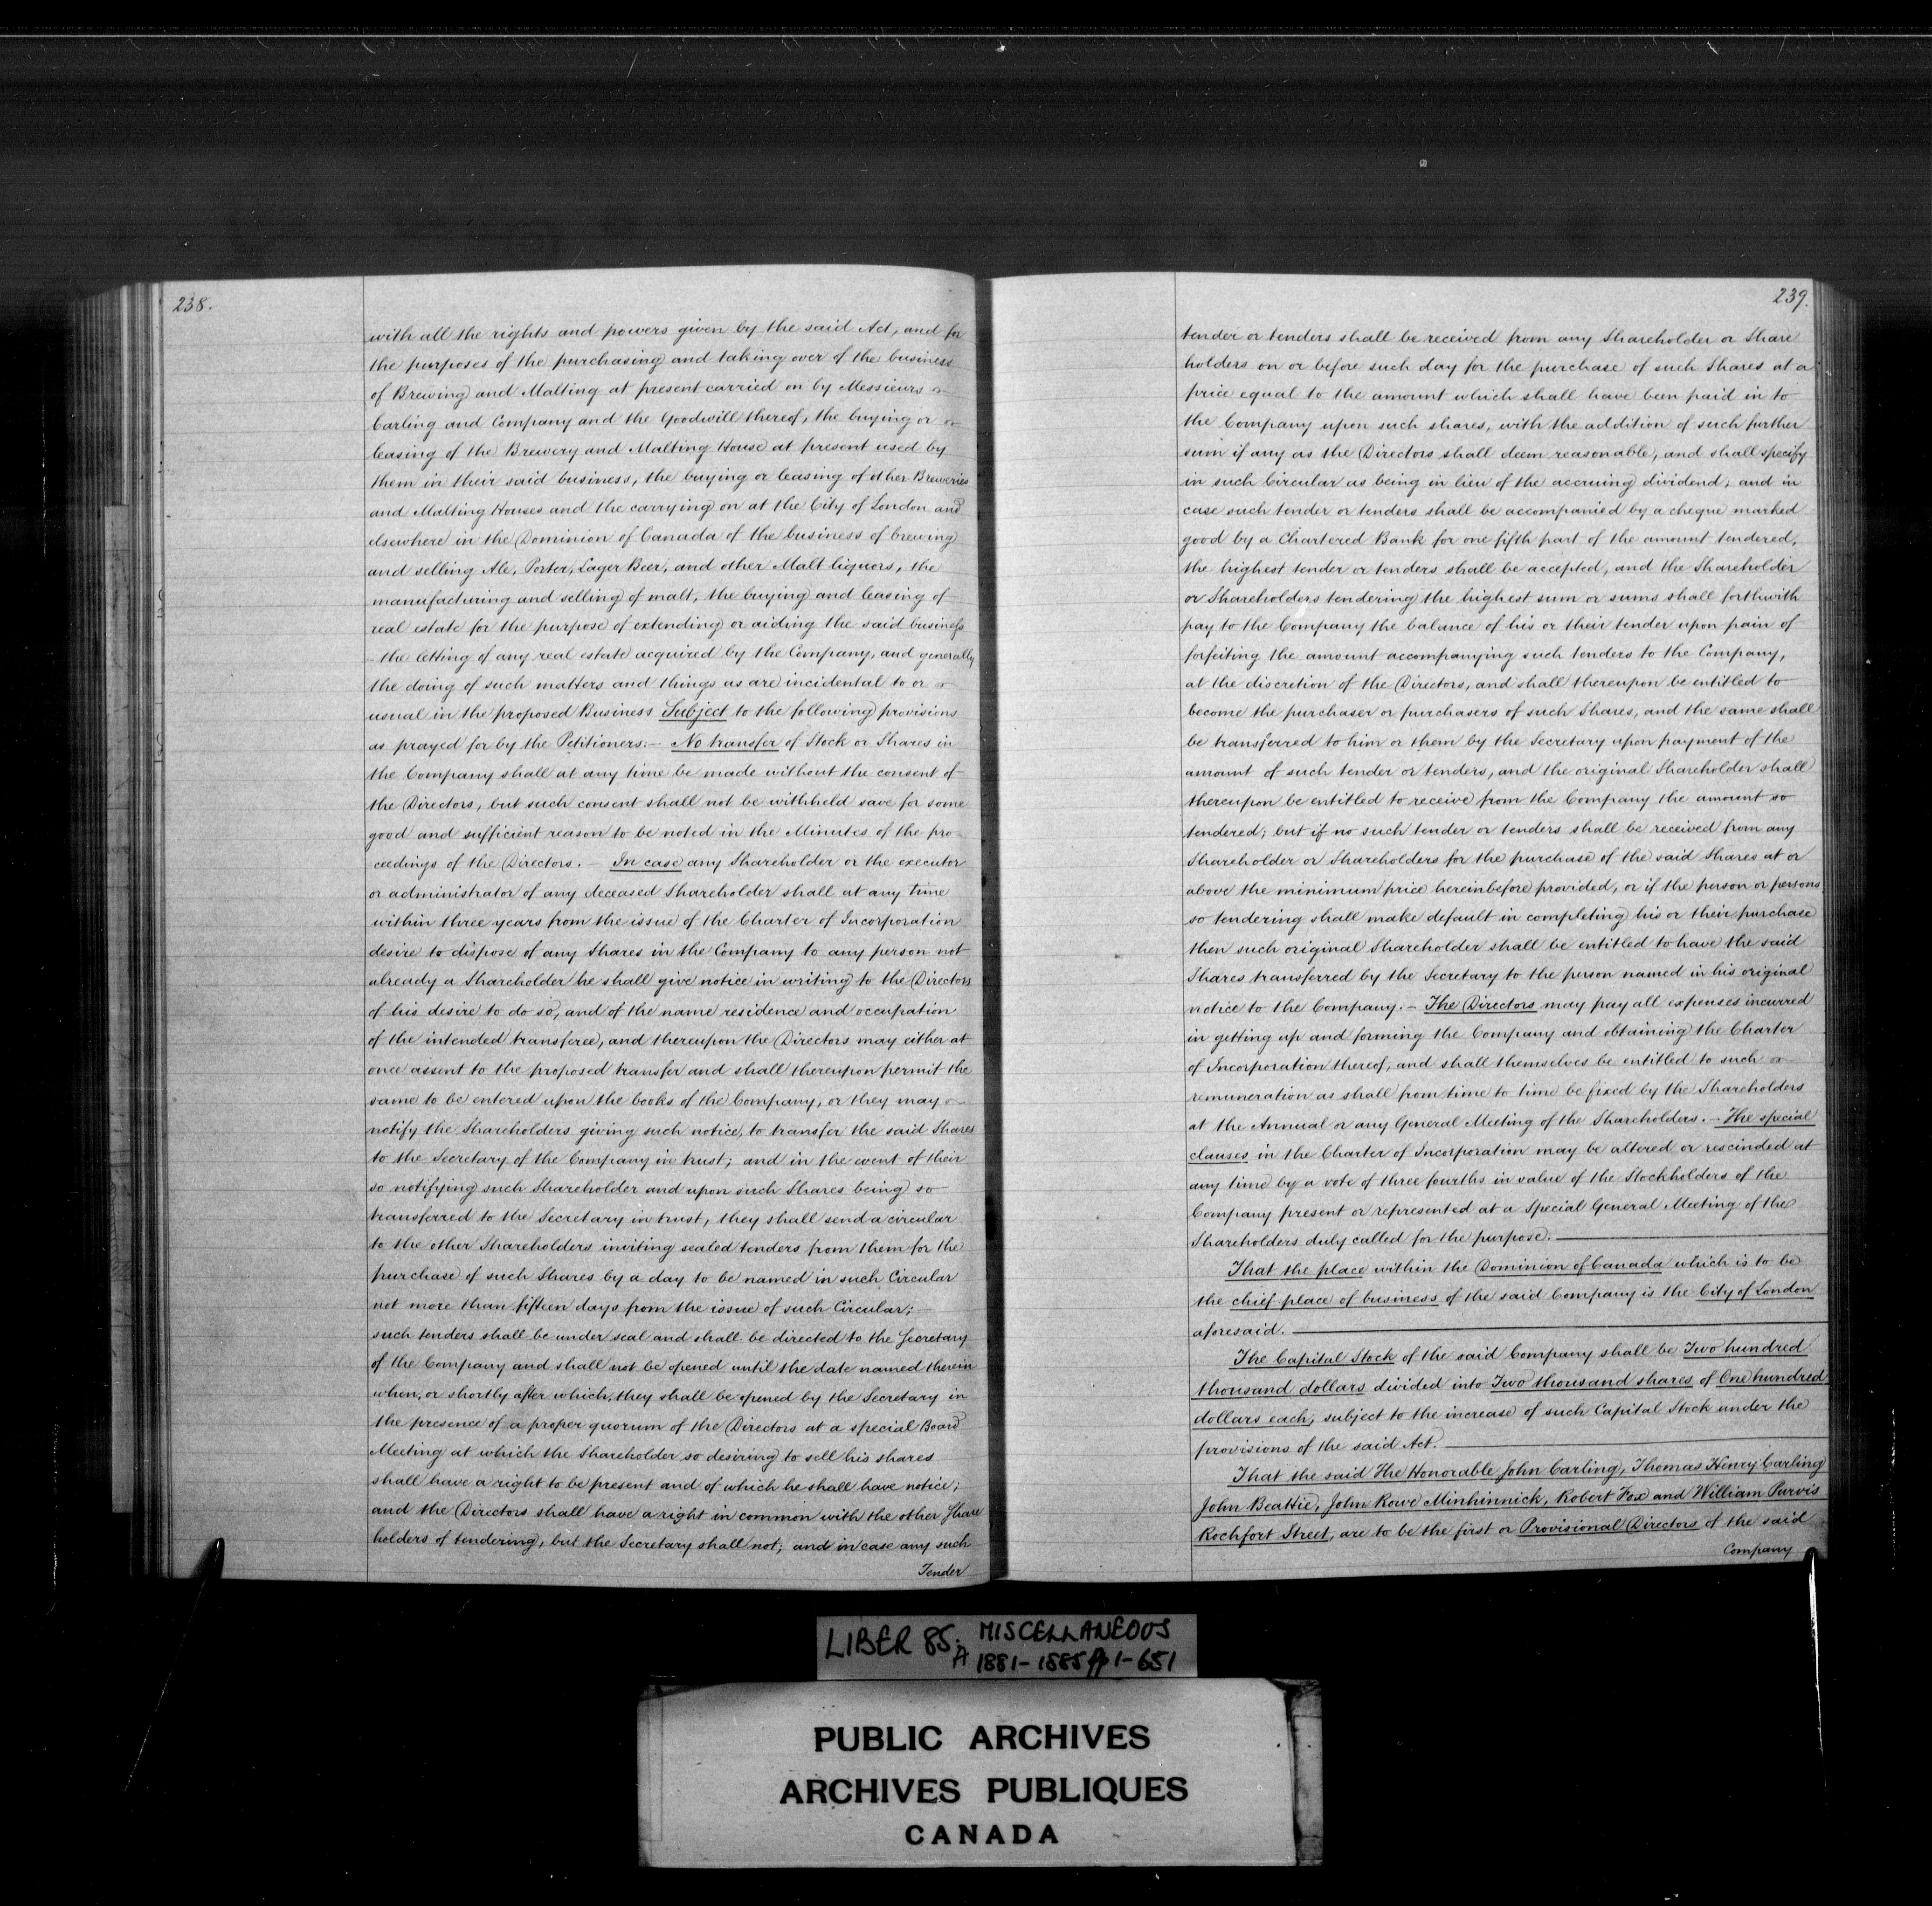 238.
with all the rights and powers given by the said Act, and for
the purposes of the purchasing and taking over of the business
of Brewing and Malting at present carried on by Messieurs
Carling and Company and the Goodwill thereof, the buying or
leasing of the Brewery and Malting House at present used by
them in their said business, the buying or leasing of other Breweries
and Malting Houses and the carrying on at the City of London and
elsewhere in the Dominion of Canada of the business of brewing
and selling Ale, Porter, Lager Beer, and other Malt liquors, the
manufacturing and selling of malt, the buying and leasing of
real estate for the purpose of extending or aiding the said business
- the letting of any real estate acquired by the Company, and generally
the doing of such matters and things as are incidental to or
usual in the proposed Business Subject to the following provisions
as prayed for by the Petitioners:- No transfer of Stock or Shares in
the Company shall at any time be made without the consent of
the Directors, but such consent shall not be withheld save for some
good and sufficient reason to be noted in the Minutes of the pro-
ceedings of the Directors. - In case any Shareholder or the executor
or administrator of any deceased Shareholder shall at any time
within three years from the issue of the Charter of Incorporation
desire to dispose of any Shares in the Company to any person not
already a Shareholder he shall give notice in writing to the Directors
of his desire to do so, and of the name residence and occupation
of the intended transferee, and thereupon the Directors may either at
once assent to the proposed transfer and shall thereupon permit the
same to be entered upon the books of the Company, or they may
notify the Shareholders giving such notice, to transfer the said Shares
to the Secretary of the Company in trust; and in the event of their
so notifying such Shareholder and upon such Shares being so
transferred to the Secretary in trust, they shall send a circular
to the other Shareholders inviting sealed tenders from them for the
purchase of such Shares by a day to be named in such Circular
not more than fifteen days from the issue of such Circular; -
such tenders shall be under seal and shall be directed to the Secretary
of the Company and shall not be opened until the date named therein
when, or shortly after which, they shall be opened by the Secretary in
the presence of a proper quorum of the Directors at a special Board
Meeting at which the Shareholder so desiring to sell his shares
shall have a right to be present and of which he shall have notice;
and the Directors shall have a right in common with the other Share
holders of tendering, but the Secretary shall not; and in case any such
Tender
239.
tender or tenders shall be received from any Shareholder or Share
holders on or before such day for the purchase of such Shares at a
price equal to the amount which shall have been paid in to
the Company upon such shares, with the addition of such further
sum if any as the Directors shall deem reasonable, and shall specify
in such Circular as being in lieu of the accruing dividend; and in
case such tender or tenders shall be accompanied by a cheque marked
good by a Chartered Bank for one fifth part of the amount tendered,
the highest tender or tenders shall be accepted, and the Shareholder
or Shareholders tendering the highest sum or sums shall forthwith
pay to the Company the balance of his or their tender upon pain of
forfeiting the amount accompanying such tenders to the Company,
at the discretion of the Directors, and shall thereupon be entitled to
become the purchaser or purchasers of such Shares, and the same shall
be transferred to him or them by the Secretary upon payment of the
amount of such tender or tenders, and the original Shareholder shall
thereupon be entitled to receive from the Company the amount so
tendered; but if no such tender or tenders shall be received from any
Shareholder or Shareholders for the purchase of the said Shares at or
above the minimum price hereinbefore provided, or if the person or persons
so tendering shall make default in completing his or their purchase
then such original Shareholder shall be entitled to have the said
Shares transferred by the Secretary to the person named in his original
notice to the Company. - The Directors may pay all expenses incurred
in getting up and forming the Company and obtaining the Charter
of Incorporation thereof, and shall themselves be entitled to such
remuneration as shall from time to time be fixed by the Shareholders
at the Annual or any General Meeting of the Shareholders. - The special
clauses in the Charter of Incorporation may be altered or rescinded at
any time by a vote of three fourths in value of the Stockholders of the
Company present or represented at a Special General Meeting of the
Shareholders duly called for the purpose.
That the place within the Dominion of Canada which is to be
the chief place of business of the said Company is the City of London
aforesaid.
The Capital Stock of the said Company shall be Two hundred
thousand dollars divided into Two thousand shares of One hundred
dollars each, subject to the increase of such Capital Stock under the
provisions of the said Act.
That the said The Honorable John Carling, Thomas Henry Carling
John Beattie, John Rowe Minhinnick, Robert Fox and William Purvis
Rochfort Street, are to be the first or Provisional Directors of the said
Company
LIBER 85. A MISCELLANEOUS
1881-1885 pp 1-651
PUBLIC ARCHIVES
ARCHIVES PUBLIQUES
CANADA